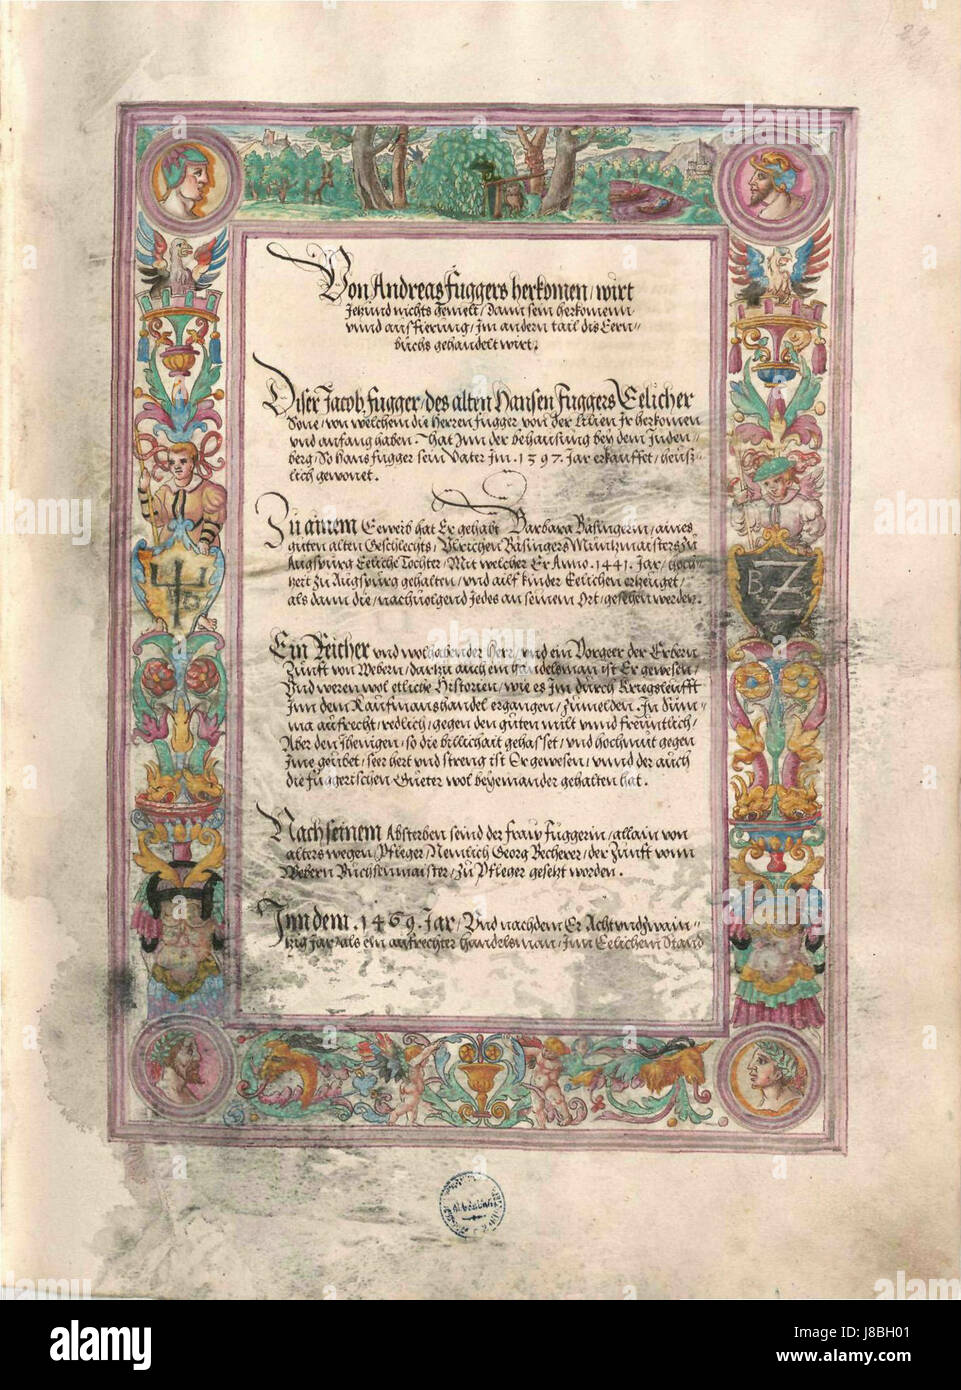 29
Von Andreas Fuggers herkomen / wirt
Jetzund nichts gemelt / Dann sein herkomenn
vnnd ausfierung / Im andern tail dis Eern-
buchs gehandelt wirt.
Diser Jacob Fugger / des alten Hansen Fuggers Eelicher
Sone / von welchem die Herren Fugger von der Lilien Jr herkomen
vnd anfang haben. Hat Jnn der behausung bey dem Juden-
berg / So Hans Fugger sein Vater Jm. 1397. Jar erkauffet / heusz-
lich gewonet.
Zu ainem Eeweib hat Er gehabt Barbara Bäsingerin / aines
guten alten Geschlechts / Vlrichen Bäsingers Müntzmaisters zu
Augspurg Eeliche Tochter / Mit welcher Er Anno. 1441. Jar / hoch-
zeit zu Augspurg gehalten / vnd ailf kinder Eelichen erzeuget /
als dann die / nachuolgend Jedes an seinem Ort / gesehen werden.
Ein Reicher vnd wolhabender Herr / vnd ein Vorgeer der Erbern
Zunft von Webern / darzu auch ein handelsman ist Er gewesen /
Vnd weren wol etliche Historien / wie es Jm durch Kriegsleüfft
Jnn dem Kaufmanshandel ergangen / zumelden. Jn Sum-
ma aufrecht / redlich / gegen den guten milt vnnd freuntlich /
Aber den Jhenigen / so die billichait gehasset / vnd hochmut gegen
Jme geübet / seer hert vnd streng ist Er gewesen / vnnd der auch
die Fuggerischen Güeter wol beyeinander gehalten hat.
Nach seinem Absterben seind der Fraw Fuggerin / allain von
alters wegen Pfleger / Nemlich Georg Becherer / der Zunft vonn
Webern Büchsenmaister / zu Pfleger gesetzt worden.
Jnn dem. 1469. Jar / Vnd nachdem Er Achtvndzwain-
tzig Jar / als ein aufrechter handelsman / Jnn Eelichem Stand
B Z
alamy
Image ID: J8BH01
www.alamy.com